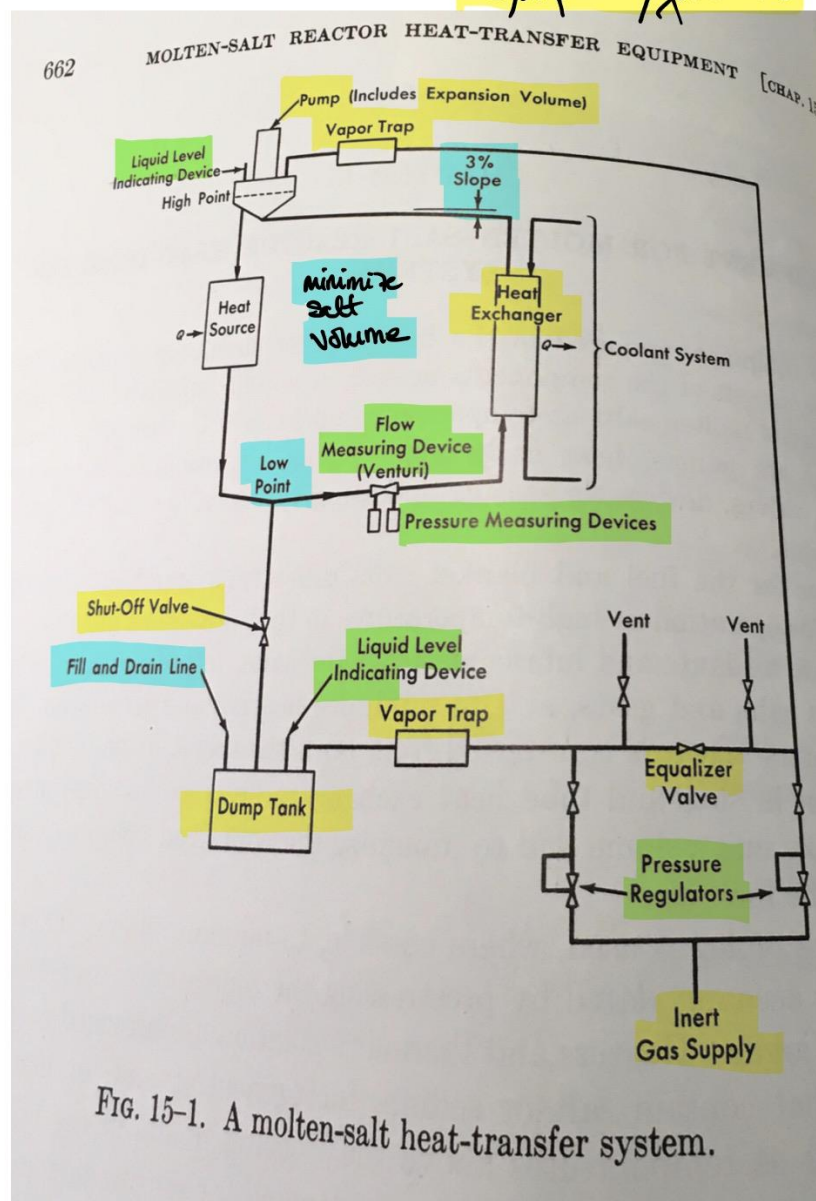 662
MOLTEN-SALT REACTOR HEAT-TRANSFER EQUIPMENT
[CHAP. 15
Pump (Includes Expansion Volume)
Vapor Trap
Liquid Level
Indicating Device
High Point
3%
Slope
Heat
Source
Q
minimize
salt
volume
Heat
Exchanger
Q
Coolant System
Flow
Measuring Device
(Venturi)
Low
Point
Pressure Measuring Devices
Shut-Off Valve
Fill and Drain Line
Liquid Level
Indicating Device
Vapor Trap
Dump Tank
Vent
Vent
Equalizer
Valve
Pressure
Regulators
Inert
Gas Supply
FIG. 15-1. A molten-salt heat-transfer system.